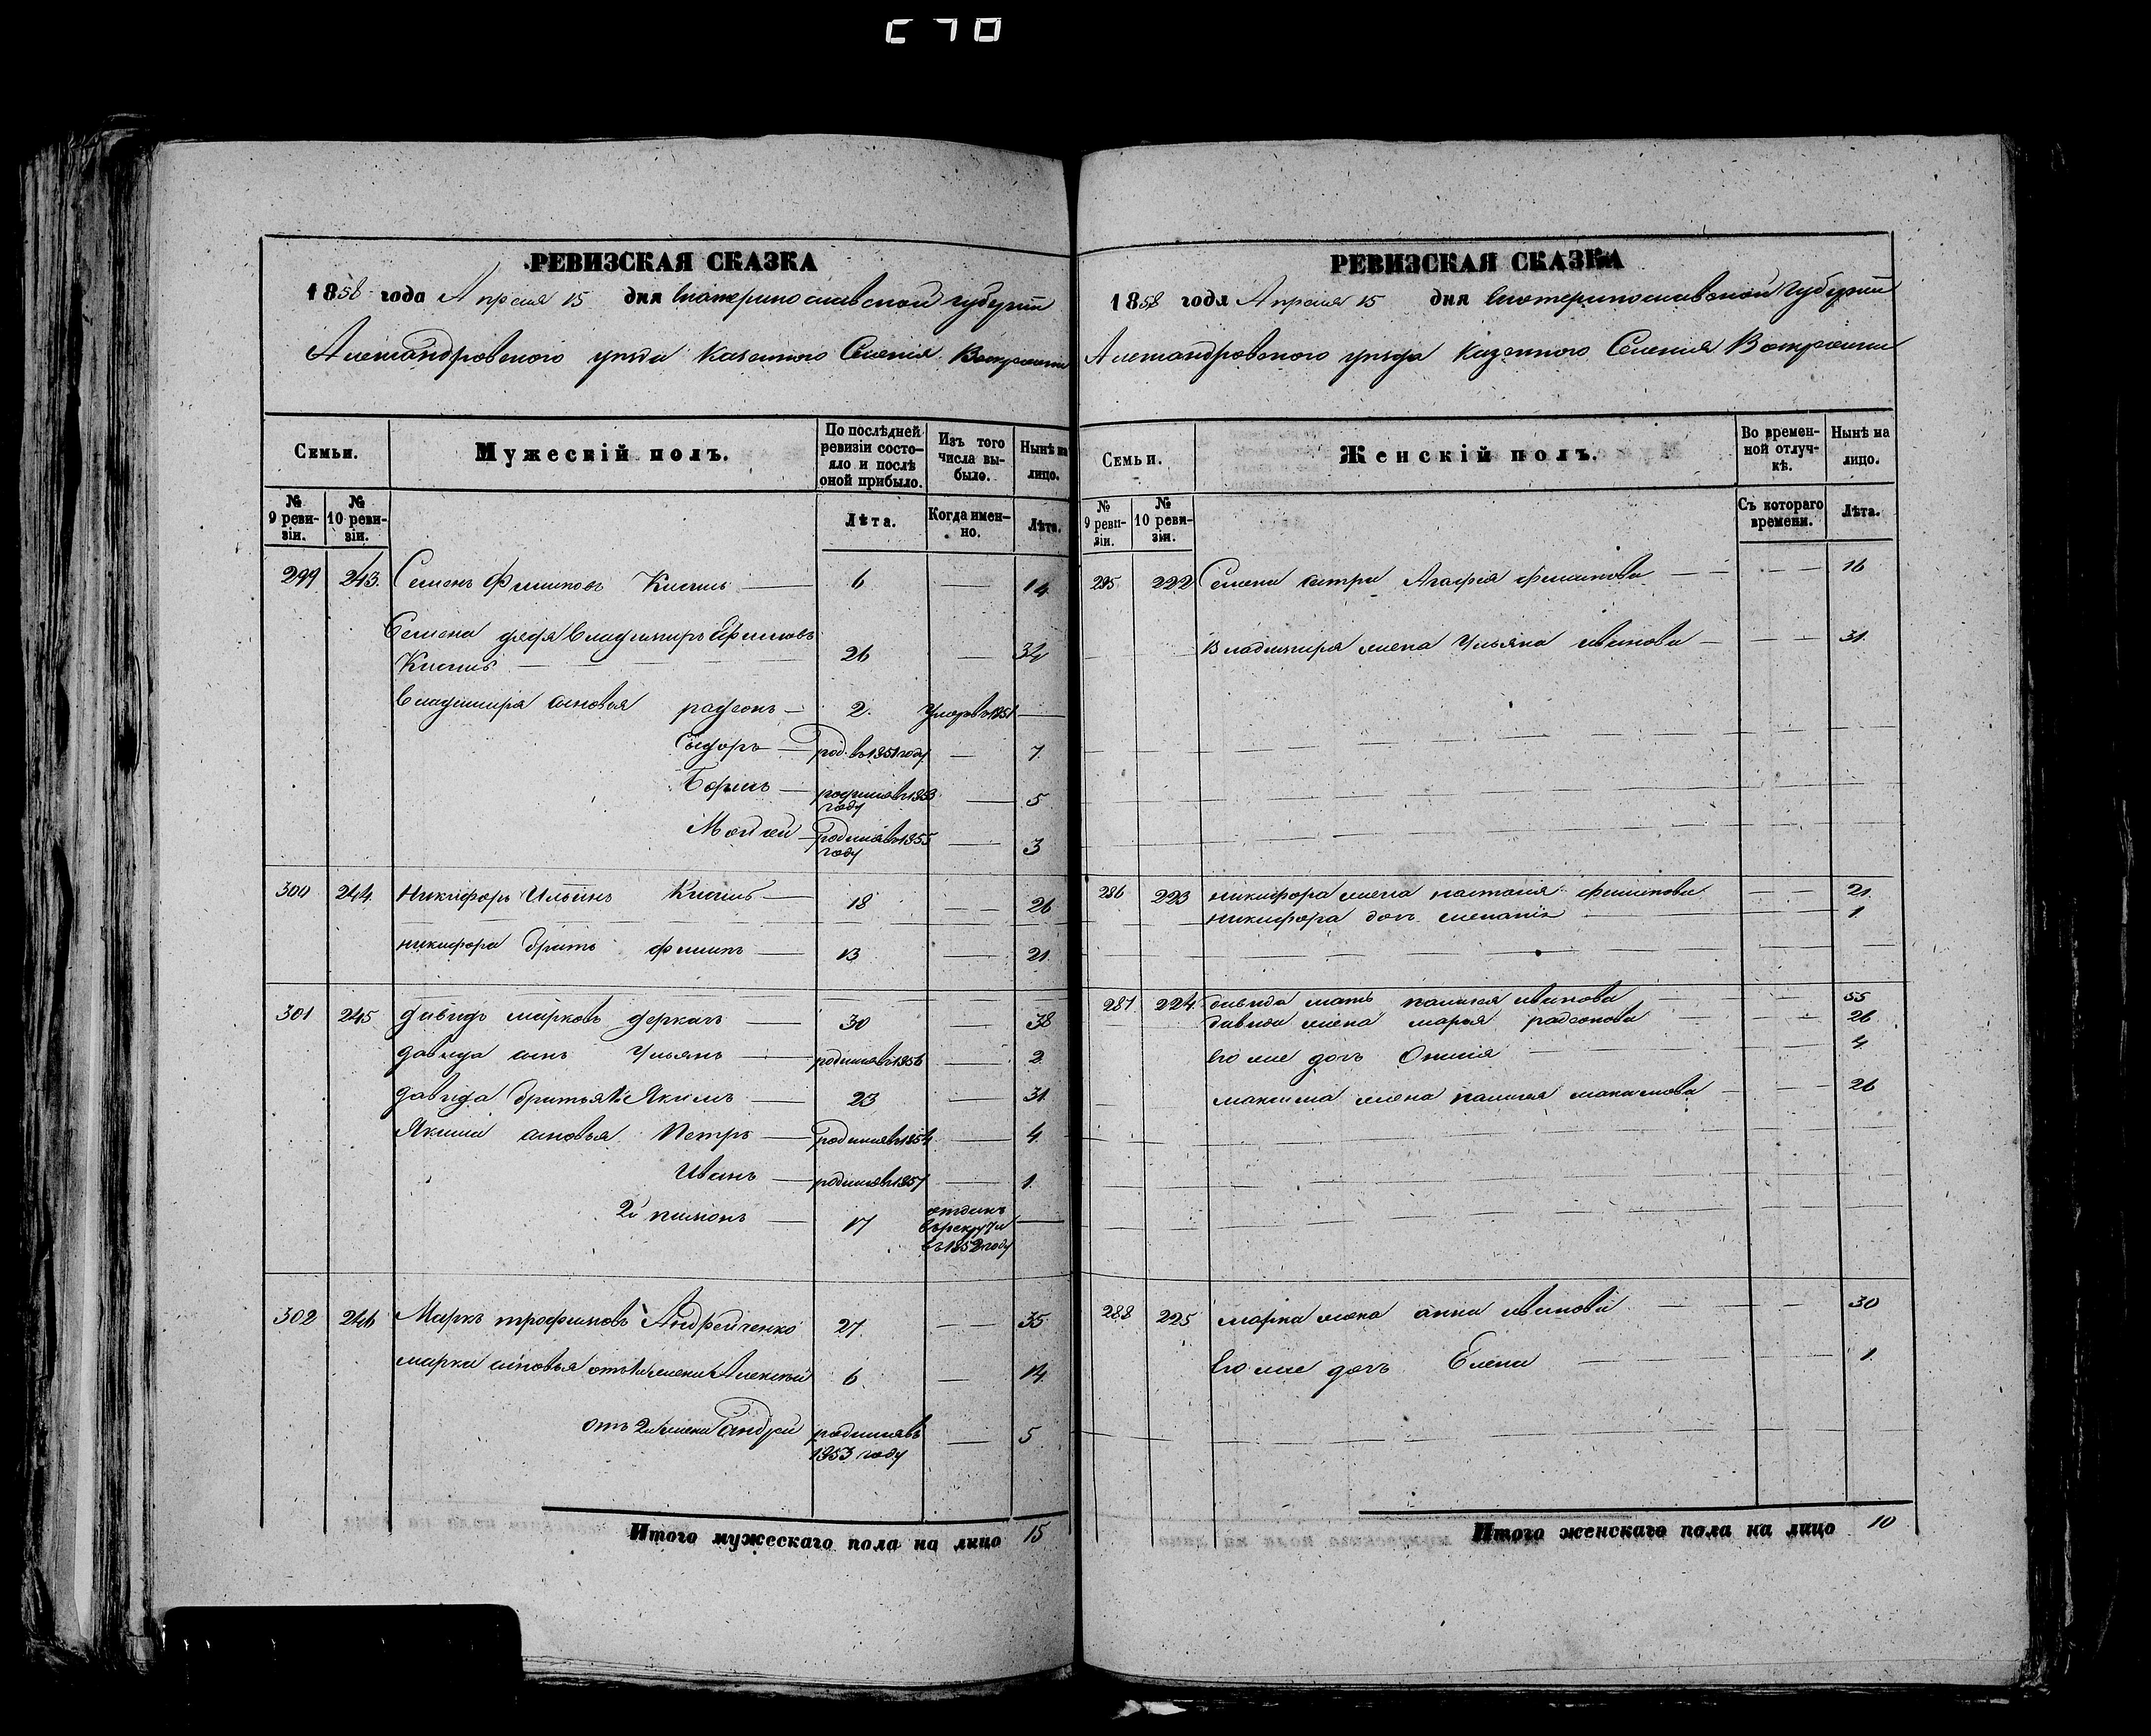 РЕВИЗСКАЯ СКАЗКА
1858 года Апреля 15 дня Екатеринославской губернии
Александровского уезда Казенного Селения
Семьи.
Мужескій полъ.
По послѣдней ревизіи состояло и послѣ оной прибыло.
Изъ того числа выбыло.
Нынѣ на лицо.
№ 9 ревизіи.
№ 10 ревизіи.
Лѣта.
Когда именно.
Лѣта.
299 243. Семенъ Филиповъ 6 — 14
Семена дядя Владимиръ
26 — 34
Владимира сыновья радеонъ — 2. умеръ в 1851 —
Сыдоръ — род. въ 1851 году — 7.
Борисъ — родился в 1853 году — 5
Мойсей — родился в 1855 году — 3
300 244. Никифоръ Ильинъ 18 — 26
никифора братъ филипъ — 13 — 21.
301 245 давидъ марковъ деркачъ — 30 — 38
давида сынъ Ульянъ — родился в 1856 — 2
давида братья 1й Якимъ — 23 — 31.
Якима сыновья Петръ — родился в 1854 — 4.
Иванъ — родился в 1857 — 1.
2й 17 отданъ в рекруты въ 1852 году —
302 246 Маркъ трофимовъ Андрейченко 27. — 35
марка сыновья отъ 1й жены Алексей 6. — 14.
отъ 2й жены андрей родился въ 1853 году — 5
Итого мужескаго пола на лицо 15
РЕВИЗСКАЯ СКАЗКА
1858 года Апреля 15 дня Екатеринославской Губернии
Александровского уезда Казенного Селения
Семьи.
Женскій полъ.
Во временной отлучкѣ.
Нынѣ на лицо.
№ 9 ревизіи.
№ 10 ревизіи.
Съ котораго времени.
Лѣта.
285 222 Семена сестра Агафия филипова — 16
Владимира жена Ульяна иванова — 31.
286 223 никифора жена настасия филипова — 21.
никифора доч. — 1.
287 224 давида мать иванова — 55
давида жена марья радеонова — 26
его же дочь — 4.
максима жена максимова — 26
288 225 марка жена анна иванова — 30
Его же дочь Елена — 1.
Итого женскаго пола на лицо 10